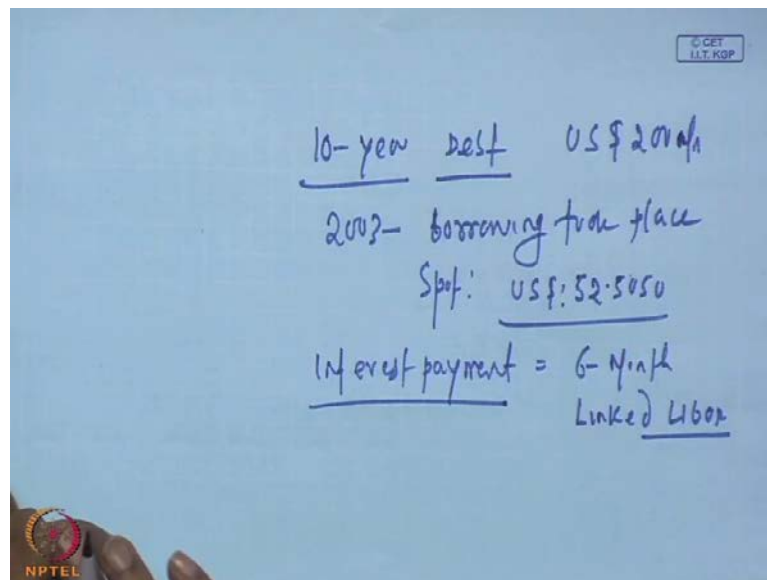 © CET
I.I.T. KGP
10-year Debt US $ 200 mln
2003- borrowing took place
Spot: US $: 52.5050
Interest payment = 6-Month
Linked Libor
NPTEL